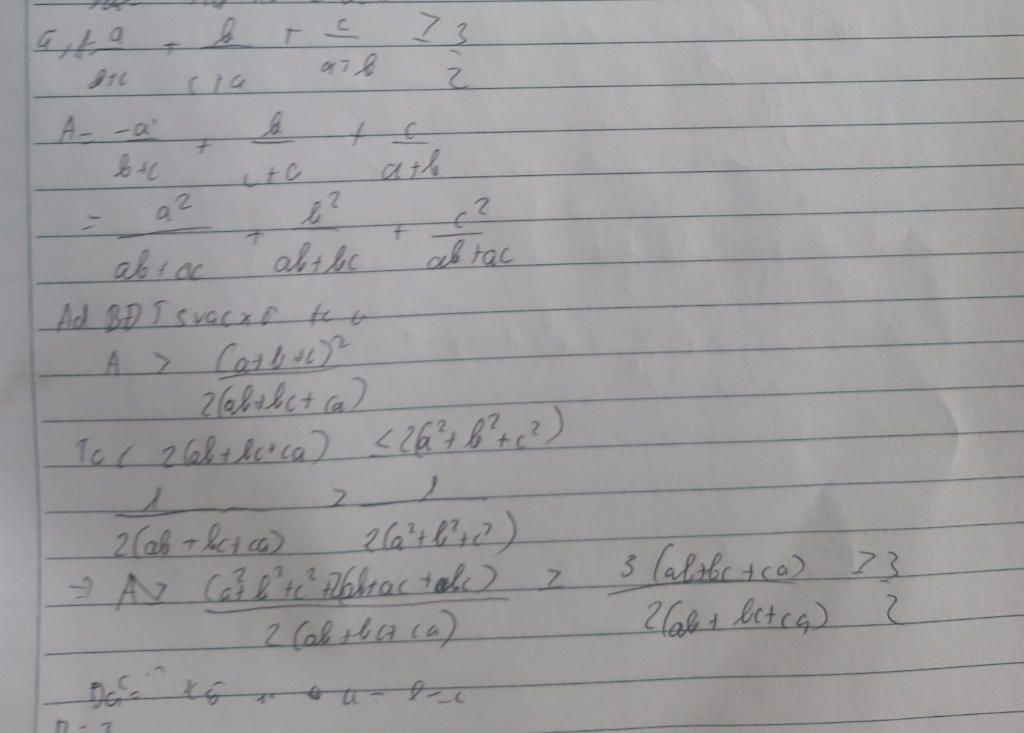 a, \frac{a}{b+c} + \frac{b}{c+a} + \frac{c}{a+b} ≥ \frac{3}{2}
A = \frac{a}{b+c} + \frac{b}{c+c} + \frac{c}{a+b}
= \frac{a^2}{ab+ac} + \frac{b^2}{ab+bc} + \frac{c^2}{ab+ac}
Ad BĐT svacxơ tc
A ≥ \frac{(a+b+c)^2}{2(ab+bc+ca)}
Tc 2(ab+bc+ca) ≤ 2(a^2+b^2+c^2)
\frac{1}{2(ab+bc+ca)} ≥ \frac{1}{2(a^2+b^2+c^2)}
⇒ A ≥ \frac{(a^2+b^2+c^2+2(ab+ac+abc)}{2(ab+bc+ca)} ≥ \frac{3(ab+bc+ca)}{2(ab+bc+ca)} ≥ \frac{3}{2}
a = b = c